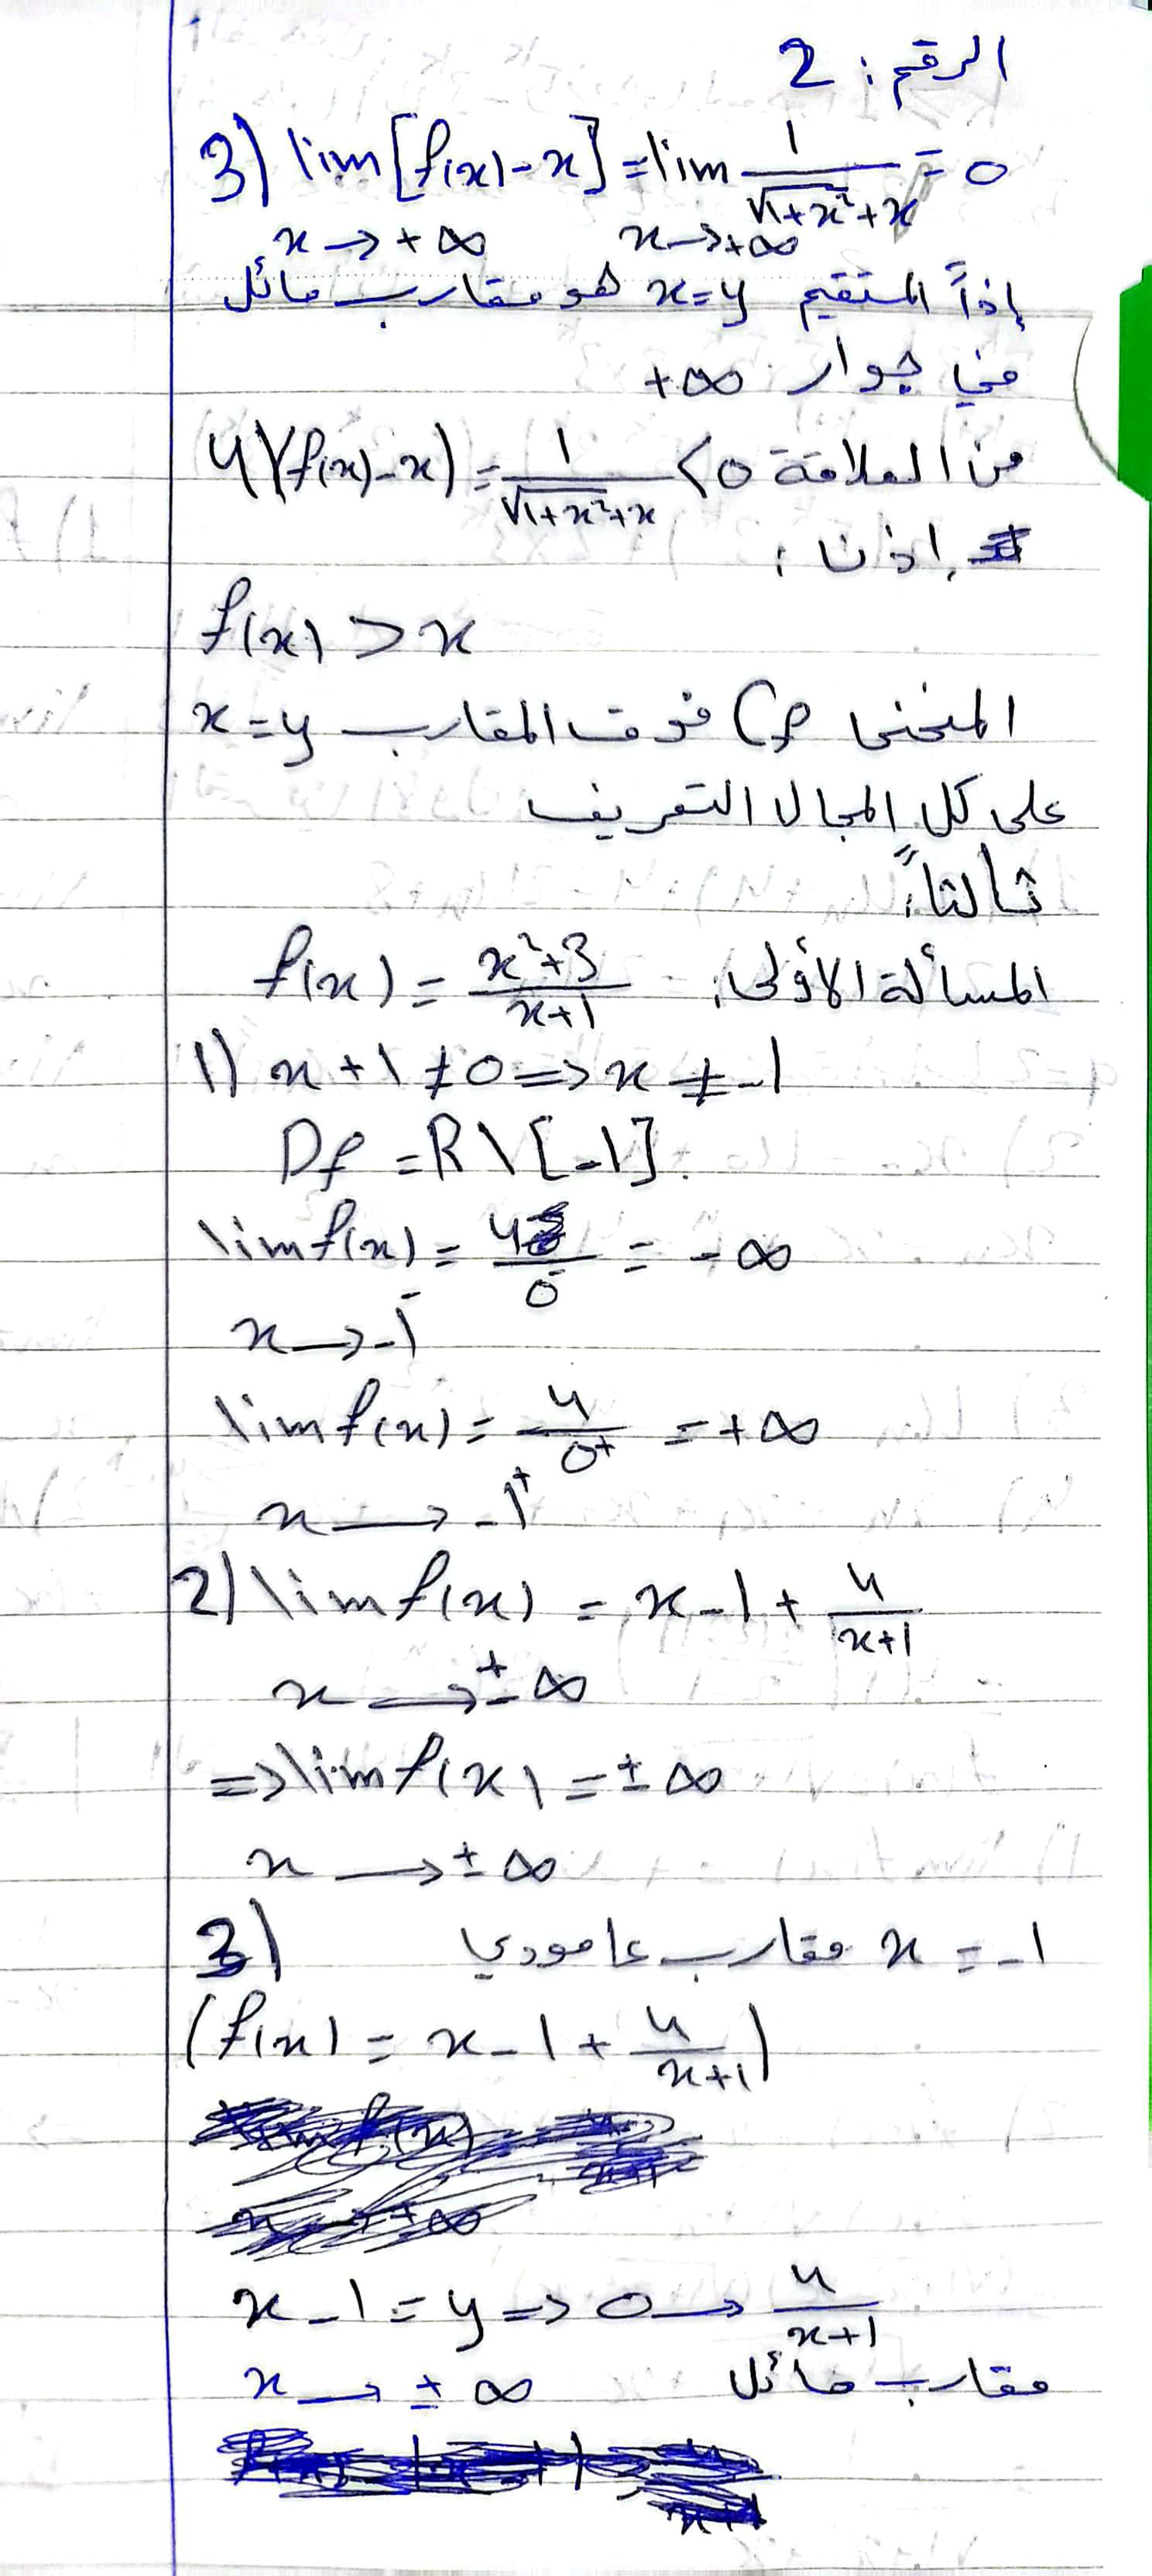 الرقم: 2
3) lim [f(x)-x] = lim 1/(√1+x²+x) = 0
x → +∞ x → +∞
إذاً المتقيم x=y هو مقارب مائل
في جوار +∞
4) (f(x)-x) = 1/(√1+x²+x) > 0 من العلاقة
إذن:
f(x) > x
المنحنى Cf فوق المقارب x=y
على كل المجال التعريف
ثالثاً:
المسألة الأولى: f(x) = (x²+3)/(x+1)
1) x+1 ≠ 0 => x ≠ -1
Df = R \ [-1]
lim f(x) = 4/0⁻ = -∞
x → -1⁻
lim f(x) = 4/0⁺ = +∞
x → -1⁺
2) lim f(x) = x-1+ 4/(x+1)
x → ±∞
=> lim f(x) = ±∞
x → ±∞
3) x = -1 مقارب عامودي
(f(x) = x-1+ 4/(x+1))
x-1 = y => 0 → 4/(x+1)
x → ±∞ مقارب مائل